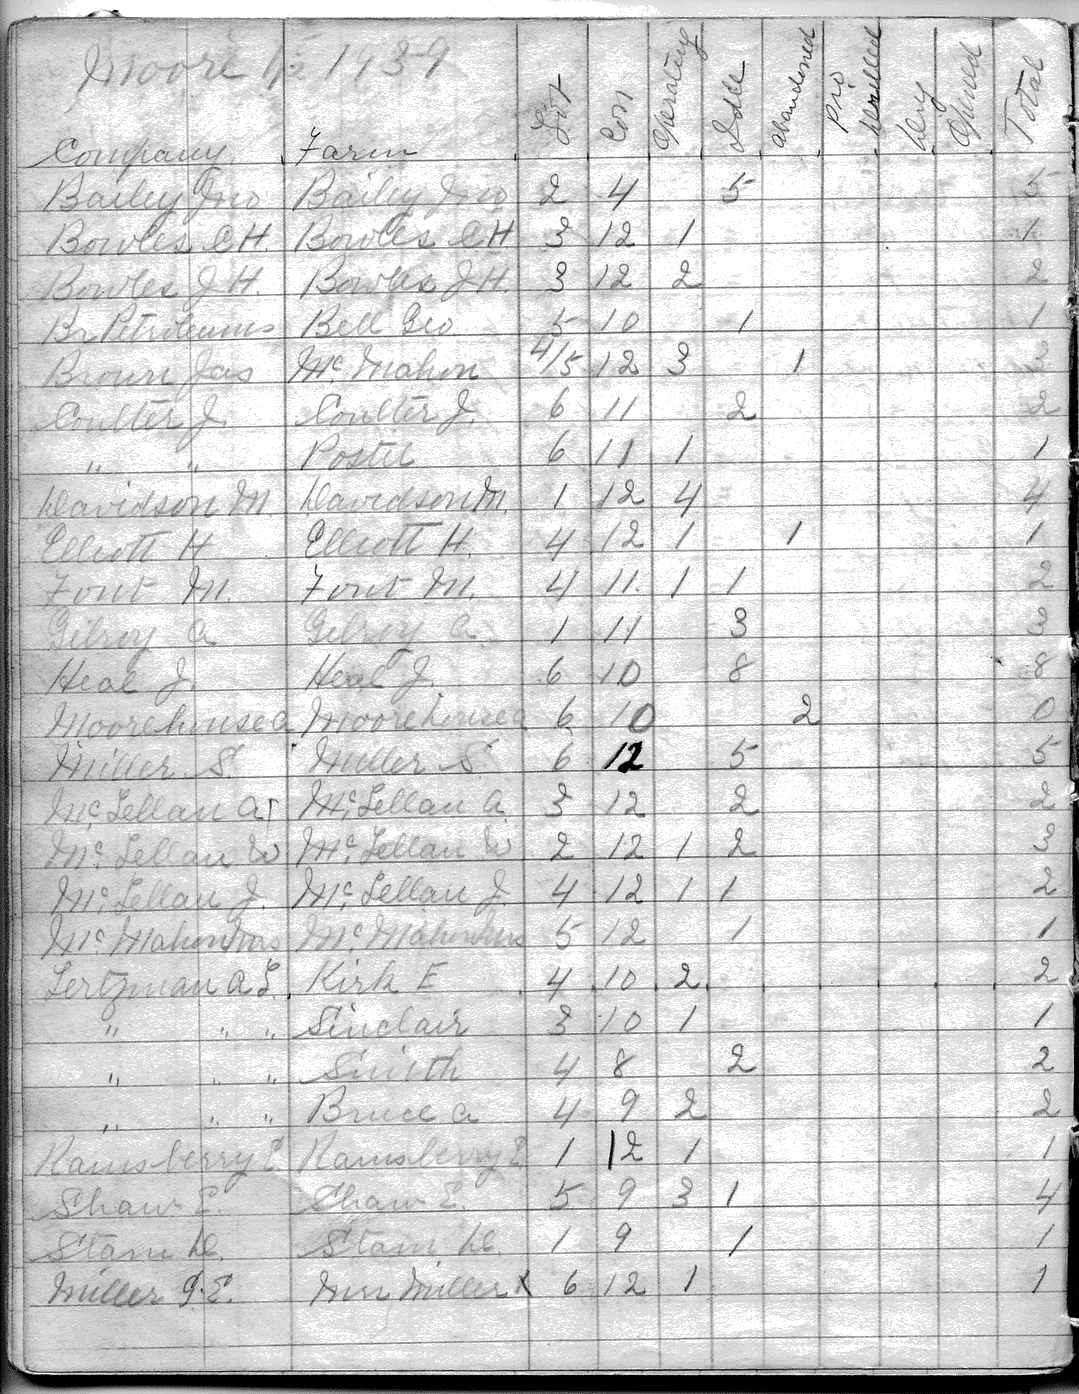 Moore 1/2 1939
Company Farm Lot Con Operating Idle Abandoned Pro Drilled Dry Opened Total
Bailey Jno Bailey Jno 2 4 5 5
Bowles C H. Bowles C H 3 12 1 1
Bowles J H. Bowles J H. 3 12 2 2
Br Petroleums Bell Geo 5 10 1 1
Brown Jas Mc Mahon 4/5 12 3 1 3
Coulter J. Coulter J. 6 11 2 2
" " Postil 6 11 1 1
Davidson M. Davidson M. 1 12 4 4
Elliott H Elliott H. 4 12 1 1 1
Font M. Font M. 4 11. 1 1 2
Gilroy A Gilroy A. 1 11 3 3
Heal J. Heal J. 6 10 8 8
Moorehouse A Moorehouse A 6 10 2 0
Miller S. Miller S. 6 12 5 5
Mc Lellan A Mc Lellan A. 3 12 2 2
Mc Lellan W Mc Lellan W 2 12 1 2 3
Mc Lellan J. Mc Lellan J. 4 12 1 1 2
Mc Mahon Mc Mahon 5 12 1 1
Lertzman A L. Kirk E 4 10 2 2
" " " Sinclair 3 10 1 1
" " " Smith 4 8 2 2
" " " Bruce A 4 9 2 2
Ramsberry E Ramsberry E. 1 12 1 1
Shaw E. Shaw E. 5 9 3 1 4
Stam D. Stam D. 1 9 1 1
Miller G. E. Mrs Miller X 6 12 1 1